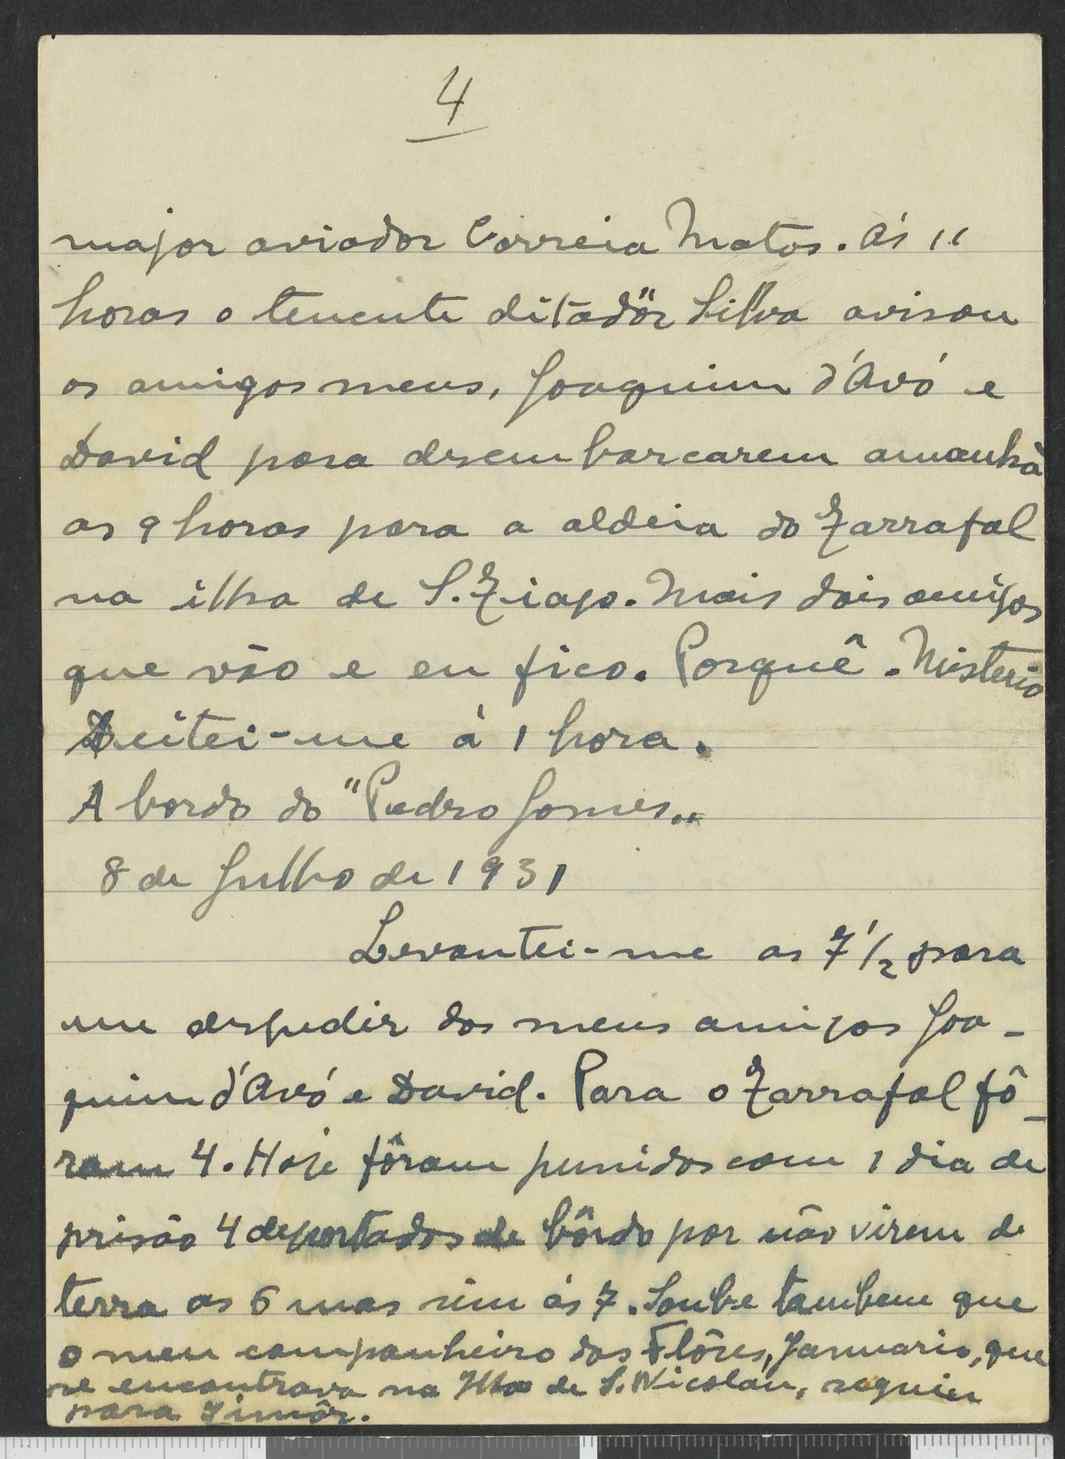 4
major aviador Correia Matos. Ás 11
horas o tenente ditadôr Silva avisou
os amigos meus, Joaquim d'Avó e
David para desembarcarem amanhã
as 9 horas para a aldeia do Tarrafal
na ilha de S. Tiago. Mais dois amigos
que vão e eu fico. Porquê. Misterio
Deitei-me á 1 hora.
A bordo do "Pedro Gomes„
8 de Julho de 1931
Levantei-me as 7 1/2 para
me despedir dos meus amigos Joa-
quim d'Avó e David. Para o Tarrafal fô-
ram 4. Hoje fôram punidos com 1 dia de
prisão 4 deportados de bôrdo por não virem de
terra as 6 mas sim ás 7. Soube tambem que
o meu companheiro das Flôres, Januario, que
se encontrava na Ilha de S. Nicolau, seguiu
para Timôr.